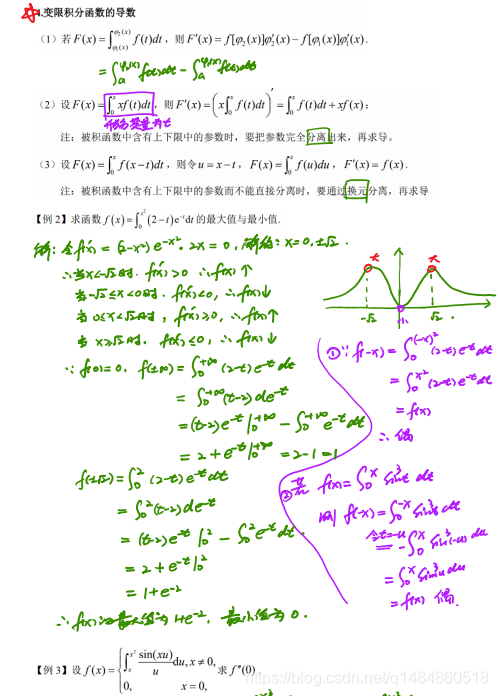 4.变限积分函数的导数
（1）若F(x)=∫_{φ₁(x)}^{φ₂(x)} f(t)dt，则F′(x)=f[φ₂(x)]φ₂′(x)−f[φ₁(x)]φ₁′(x).
=∫_a^{φ₂(x)} f(t)dt−∫_a^{φ₁(x)} f(t)dt
（2）设F(x)=∫_0^x xf(t)dt，则F′(x)=(x∫_0^x f(t)dt)′=∫_0^x f(t)dt+xf(x)；
注：被积函数中含有上下限中的参数时，要把参数完全分离出来，再求导。
（3）设F(x)=∫_0^x f(x−t)dt，则令u=x−t，F(x)=∫_0^x f(u)du，F′(x)=f(x).
注：被积函数中含有上下限中的参数而不能直接分离时，要通过换元分离，再求导
【例 2】求函数f(x)=∫_0^{x²}(2−t)e^{−t}dt的最大值与最小值.
解：令f′(x)=(2−x²)e^{−x²}·2x=0，解得：x=0,±√2.
∴当x<−√2时，f′(x)>0 ∴f(x)↑
当−√2≤x<0时，f′(x)<0，∴f(x)↓
当0≤x<√2时，f′(x)≥0，∴f(x)↑
当x≥√2时，f′(x)≤0，∴f(x)↓
大
大
小
−√2
√2
∵f(0)=0，f(±∞)=∫_0^{+∞}(2−t)e^{−t}dt
=∫_0^{+∞}(t−2)de^{−t}
=(t−2)e^{−t}|_0^{+∞}−∫_0^{+∞}e^{−t}dt
=2+e^{−t}|_0^{+∞}=2−1=1
f(±√2)=∫_0^2(2−t)e^{−t}dt
=∫_0^2(t−2)de^{−t}
=(t−2)e^{−t}|_0^2−∫_0^2e^{−t}dt.
=2+e^{−t}|_0^2
=1+e^{−2}
∴f(x)的最大值为1+e^{−2}，最小值为0.
①∵f(−x)=∫_0^{(−x)²}(2−t)e^{−t}dt
=∫_0^{x²}(2−t)e^{−t}dt
=f(x)
∴偶
②若f(x)=∫_0^x sin³t dt
则f(−x)=∫_0^{−x}sin³t dt
令t=−u
=−∫_0^x sin³(−u)du
=∫_0^x sin³u du
=f(x) 偶.
【例 3】设f(x)={∫_x^{x²} sin(xu)/u du, x≠0, 求f″(0).
0, x=0,
https://blog.csdn.net/q1484860518